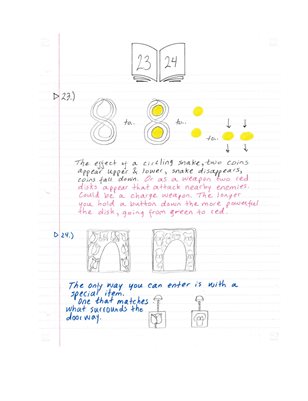 23 24
▷23.)
to.. to..
The effect of a circling snake, twin coins
appear upper & lower, snake disappears,
coins fall down. Or as a weapon two red
disks appear that attack nearby enemies.
Could be a charge weapon. The longer
you hold a button down the more powerful
the dish, going from green to red.
▷24.)
The only way you can enter is with a
special item.
One that matches
what surrounds the
doorway.